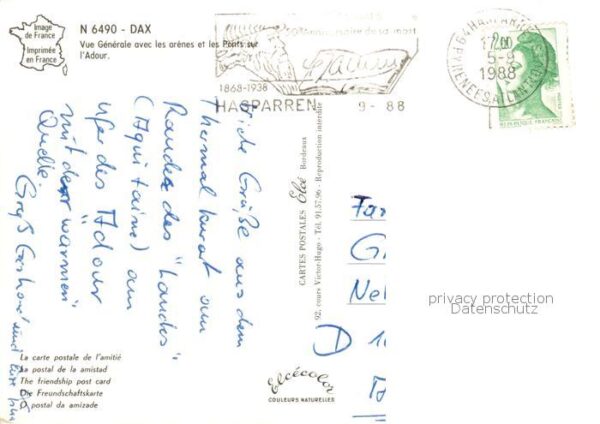 Image
de France
Imprimée
en France
N 6490 - DAX
Vue Générale avec les arènes et les Ponts sur
l'Adour.
de sa mort
1868-1938
HASPARREN
9-88
64 HASPARREN
PYRENEES ATLANTIQUES
5-9
1988
2,00
REPUBLIQUE FRANÇAISE
Grüße aus dem
Thermalkurort am
Rande des "Landes"
(Aquitaine) am
Ufer des "Adour"
mit der "warmen"
Quelle.
Gruß
CARTES POSTALES Elcé Bordeaux
92, cours Victor-Hugo - Tél. 91.57.96 - Reproduction interdite
D
privacy protection
Datenschutz
La carte postale de l'amitié
La postal de la amistad
The friendship post card
Die Freundschaftskarte
O postal da amizade
Elcécolor
COULEURS NATURELLES